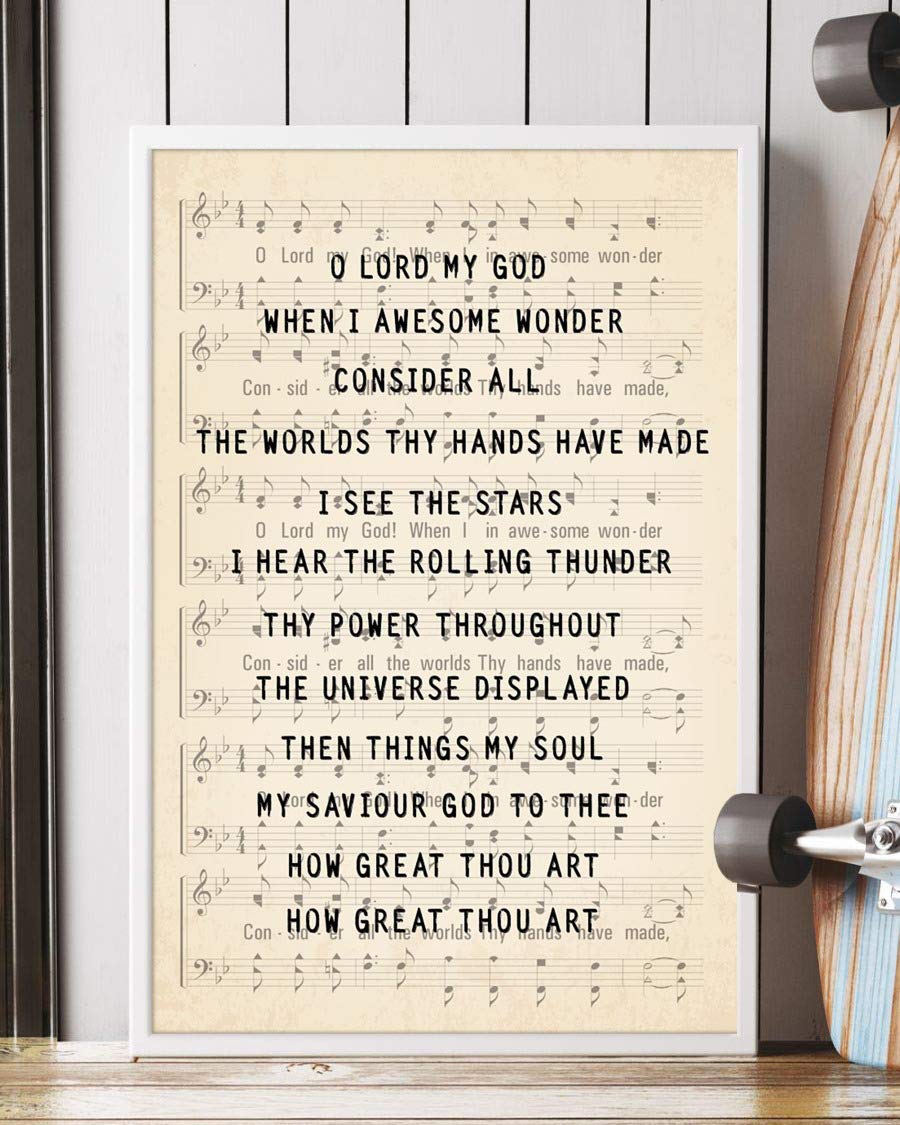 O Lord my God! When I in awe-some won-der
O LORD MY GOD
WHEN I AWESOME WONDER
CONSIDER ALL
Con-sid-er all the worlds Thy hands have made,
THE WORLDS THY HANDS HAVE MADE
I SEE THE STARS
O Lord my God! When I in awe-some won-der
I HEAR THE ROLLING THUNDER
THY POWER THROUGHOUT
Con-sid-er all the worlds Thy hands have made,
THE UNIVERSE DISPLAYED
THEN THINGS MY SOUL
O Lord my God! When I in awe-some won-der
MY SAVIOUR GOD TO THEE
HOW GREAT THOU ART
HOW GREAT THOU ART
Con-sid-er all the worlds Thy hands have made,